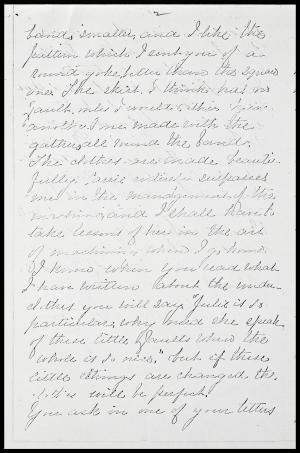 2
band smaller, and I like the
pattern which I sent you of a
round yoke, better than the square
one. The skirt, I think has no
fault, only I would
another one made with the
gathers, all round the band.
The clothes are made beauti-
fully. surpasses
me in the management of the
machine, and I shall have to
take lessons of her in the art
of machining when I go home.
I know when you read what
I have written about the under
clothes you will say "Julia is so
particular, why need she speak
of these little faults when the
whole is so nice," but if these
little things are changed, the
clothes will be perfect.
You ask in one of your letters